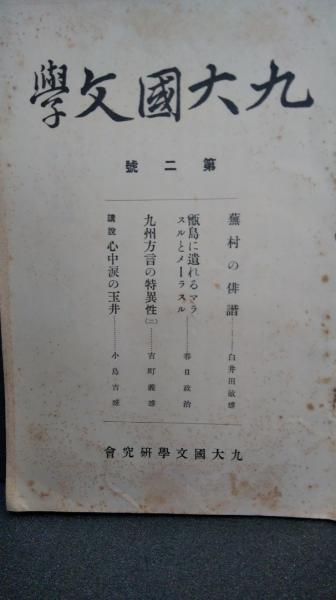 九大國文學
第二號
蕪村の俳諧
甑島に遺れるマラ
スルとメーラスル
春日政治
九州方言の特異性(二)
吉町義雄
講說 心中涙の玉井
小島吉雄
九大國文學硏究會